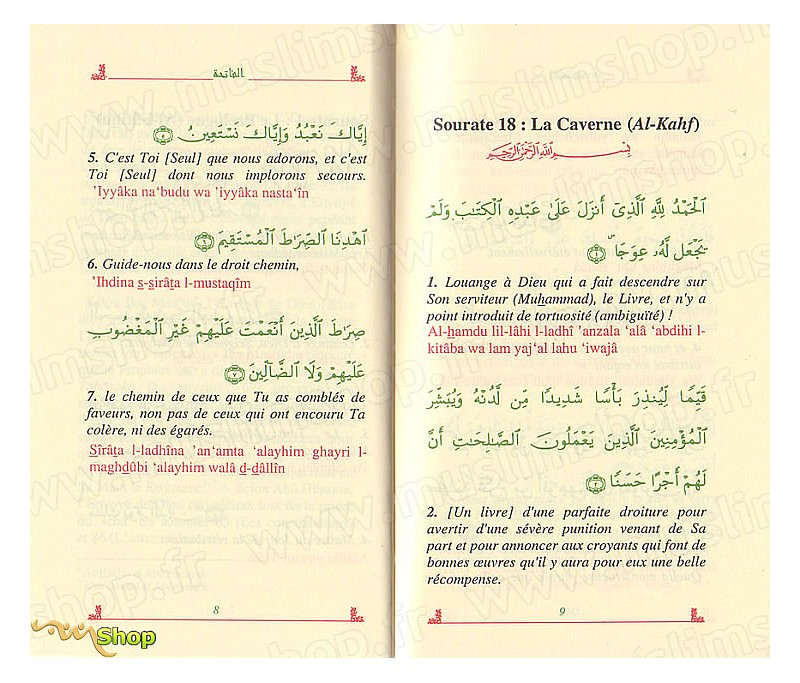 الفاتحة
إِيَّاكَ نَعْبُدُ وَإِيَّاكَ نَسْتَعِينُ ٥
5. C'est Toi [Seul] que nous adorons, et c'est
Toi [Seul] dont nous implorons secours.
’Iyyâka na‘budu wa ’iyyâka nasta‘în
ٱهْدِنَا ٱلصِّرَٰطَ ٱلْمُسْتَقِيمَ ٦
6. Guide-nous dans le droit chemin,
’Ihdina s-sirâta l-mustaqîm
صِرَٰطَ ٱلَّذِينَ أَنْعَمْتَ عَلَيْهِمْ غَيْرِ ٱلْمَغْضُوبِ
عَلَيْهِمْ وَلَا ٱلضَّآلِّينَ ٧
7. le chemin de ceux que Tu as comblés de
faveurs, non pas de ceux qui ont encouru Ta
colère, ni des égarés.
Sîrâta l-ladhîna ’an‘amta ‘alayhim ghayri l-
maghdûbi ‘alayhim walâ d-dâllîn
8
Sourate 18 : La Caverne (Al-Kahf)
بِسْمِ ٱللَّهِ ٱلرَّحْمَٰنِ ٱلرَّحِيمِ
ٱلْحَمْدُ لِلَّهِ ٱلَّذِىٓ أَنزَلَ عَلَىٰ عَبْدِهِ ٱلْكِتَٰبَ وَلَمْ
يَجْعَل لَّهُۥ عِوَجَا ۜ ١
1. Louange à Dieu qui a fait descendre sur
Son serviteur (Muhammad), le Livre, et n'y a
point introduit de tortuosité (ambiguïté) !
Al-hamdu lil-lâhi l-ladhî ’anzala ‘alâ ‘abdihi l-
kitâba wa lam yaj‘al lahu ‘iwajâ
قَيِّمًا لِّيُنذِرَ بَأْسًا شَدِيدًا مِّن لَّدُنْهُ وَيُبَشِّرَ
ٱلْمُؤْمِنِينَ ٱلَّذِينَ يَعْمَلُونَ ٱلصَّٰلِحَٰتِ أَنَّ
لَهُمْ أَجْرًا حَسَنًا ٢
2. [Un livre] d'une parfaite droiture pour
avertir d'une sévère punition venant de Sa
part et pour annoncer aux croyants qui font de
bonnes œuvres qu'il y aura pour eux une belle
récompense.
9
Shop
www.muslimshop.fr